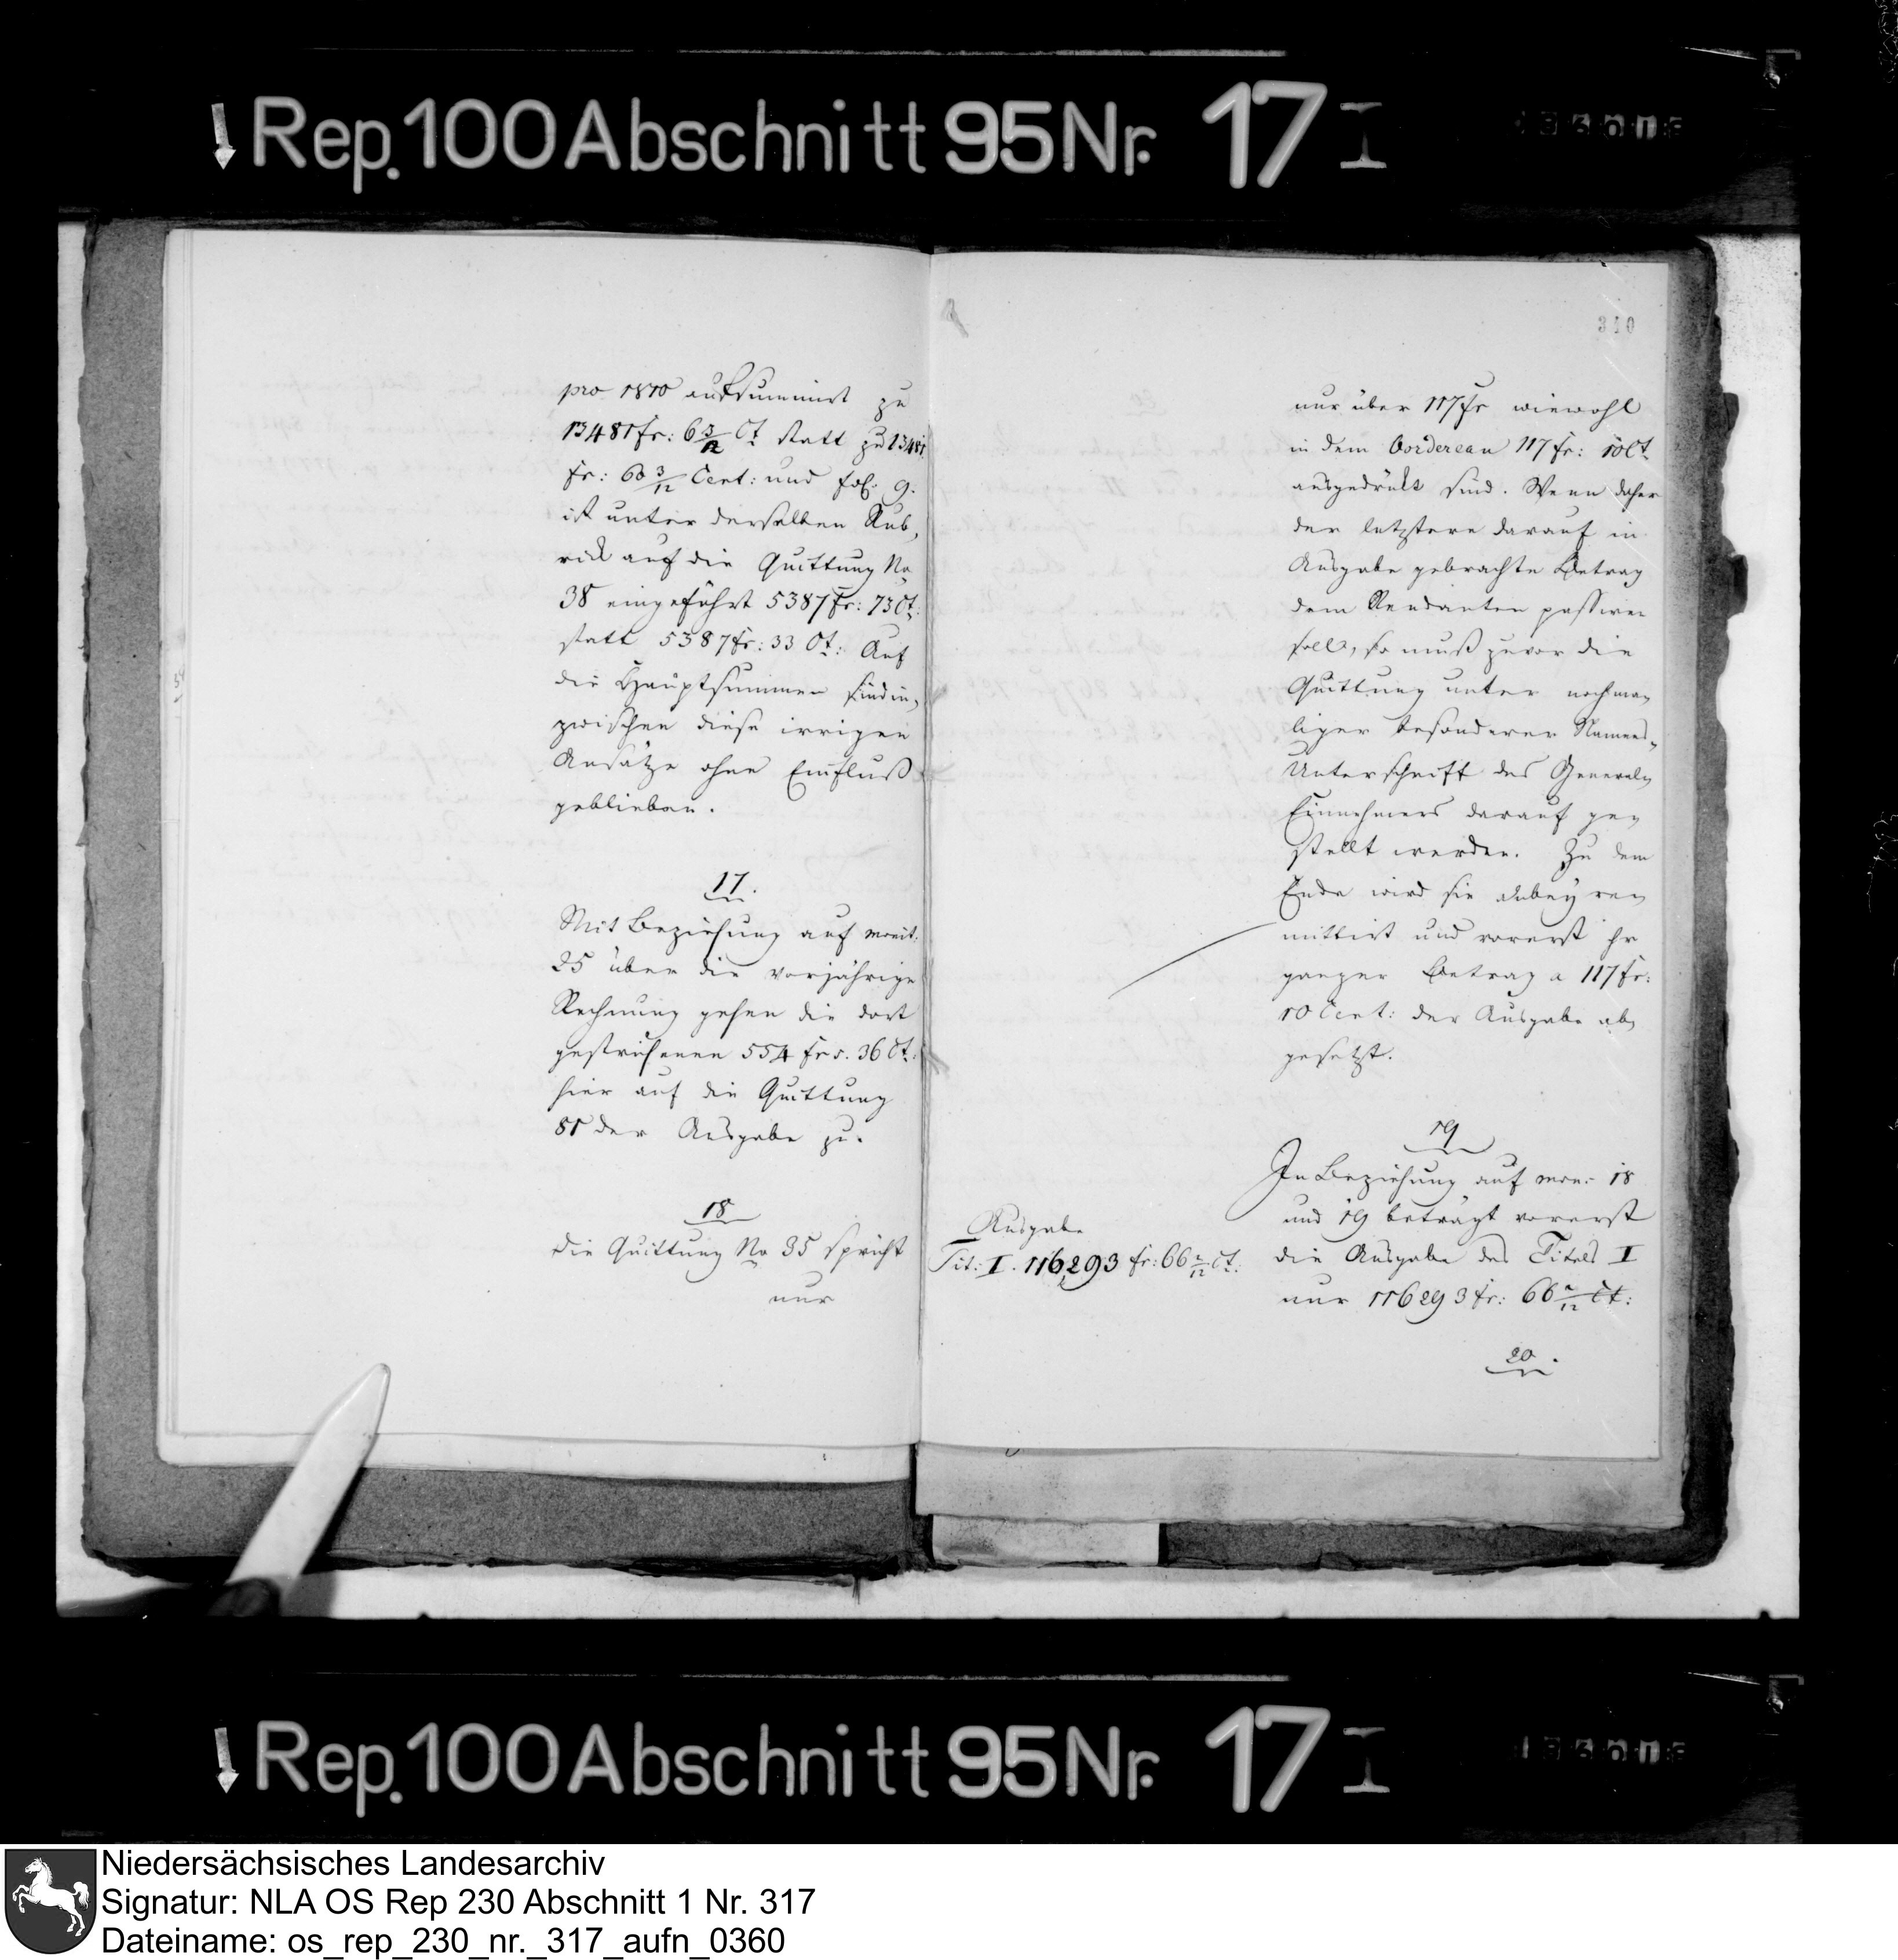 Rep. 100 Abschnitt 95 Nr. 17 I
pro 1810 aufsummirt zu
13481 fr: 6 3/12 Ct statt zu 13481
fr: 60 3/12 Cent: und fol: 9.
ist unter derselben Rub,
rick auf die Quittung No
38 eingeführt 5387 fr: 73 Ct:
statt 5387 fr: 33 Ct: Auf
die Hauptsummen sind in,
zwischen diese irrigen
Ansätze ohne Einfluß
geblieben.
17.
Mit Beziehung auf monit:
25 über die vorjährige
Rechnung gehen die dort
gestrichenen 554 frs. 36 Ct:
hier auf die Quittung
81 der Ausgabe zu.
18
Die Quittung No 35 spricht
nur
310
nur über 117 fr wiewohl
in dem Bordereau 117 fr: 10 Ct
ausgedrükt sind. Wenn daher
der letztere darauf in
Ausgabe gebrachte Betrag
dem Rendanten passiren
soll, so muß zuvor die
Quittung unter nochma,
liger besonderer Namens,
Unterschrift des General,
Einnehmers darauf ge,
stellt werden. Zu dem
Ende wird sie anbey re,
mittirt und vorerst ihr
ganzer Betrag a 117 fr:
10 Cent: der Ausgabe ab,
gesetzt.
19
In Beziehung auf mon: 18
und 19 beträgt vorerst
die Ausgabe des Titels I
nur 116293 fr: 66 2/12 Ct:
Ausgabe
Tit: I. 116,293 fr: 66 2/12 Ct:
20.
Rep. 100 Abschnitt 95 Nr. 17 I
Niedersächsisches Landesarchiv
Signatur: NLA OS Rep 230 Abschnitt 1 Nr. 317
Dateiname: os_rep_230_nr._317_aufn_0360